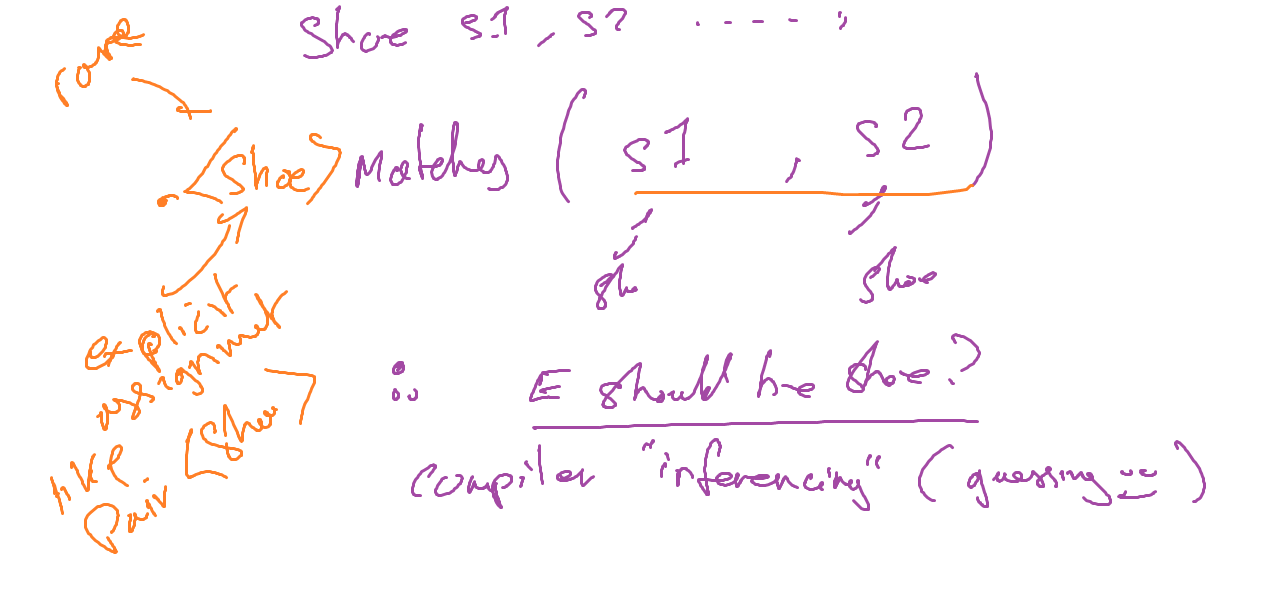 Shoe s1, s2 ..... ;
rare
.<Shoe> Matches ( s1 , s2 )
sho shoe
explicit
assignment
like
Pair <Shoe>
∴ E should be shoe?
compiler "inferencing" (guessing )